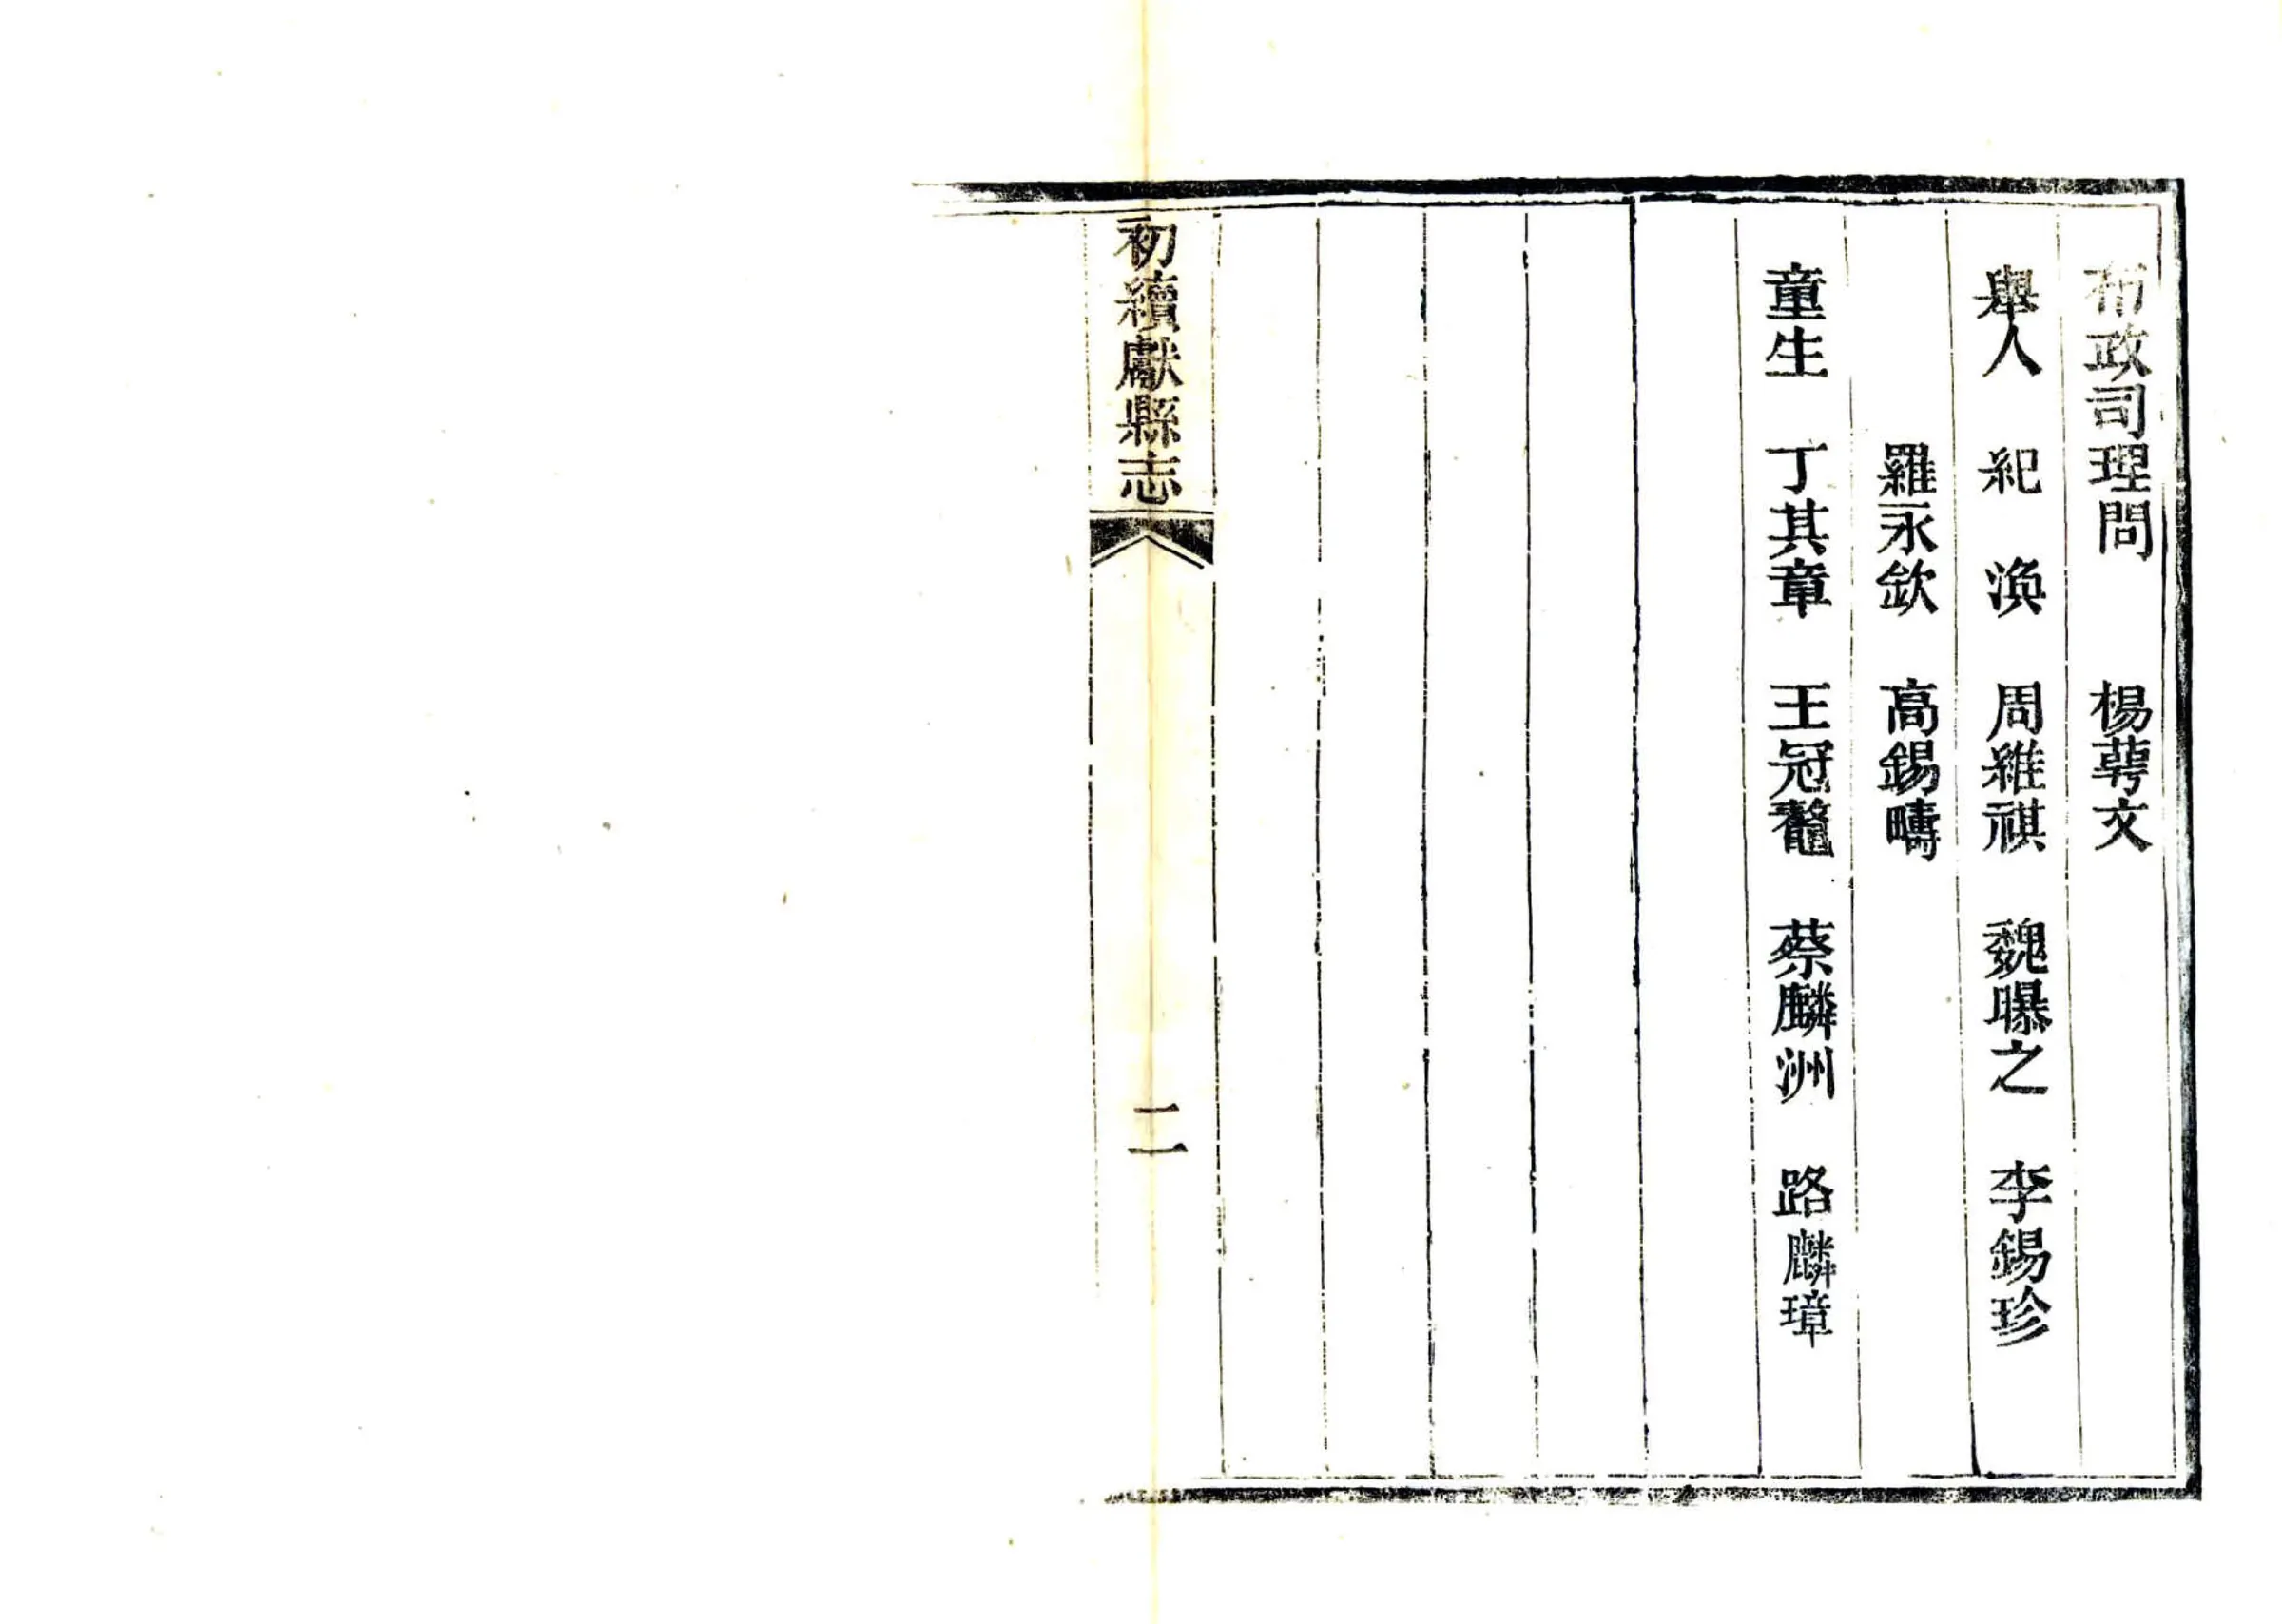 布政司理問　楊蕚文
舉人　紀　渙　周維祺　魏曝之　李錫珍
羅永欽　高錫疇
童生　丁其章　王冠鼇　蔡麟洲　路麟璋
初續獻縣志
二